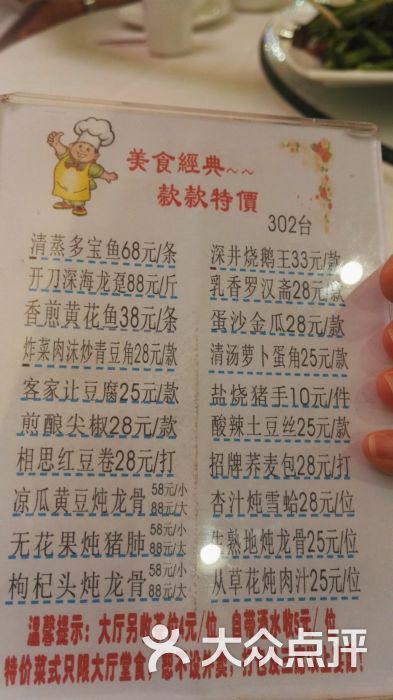 美食經典~~
款款特價
302台
清蒸多宝鱼68元/条
开刀深海龙趸88元/斤
香煎黄花鱼38元/条
炸菜肉沫炒青豆角28元/款
客家让豆腐25元/款
煎酿尖椒28元/款
相思红豆卷28元/打
凉瓜黄豆炖龙骨58元/小 88元/大
无花果炖猪肺58元/小 88元/大
枸杞头炖龙骨58元/小 88元/大
深井烧鹅王33元/款
乳香罗汉斋28元/款
蛋沙金瓜28元/款
清汤萝卜蛋角25元/款
盐烧猪手10元/件
酸辣土豆丝25元/款
招牌荞麦包28元/打
杏汁炖雪蛤28元/位
生熟地炖龙骨25元/位
从草花炖肉汁25元/位
溫馨提示：大厅另收茶位4元/位，自带酒水收5元/位
特价菜式只限大厅堂食，恕不设外卖，
大众点评